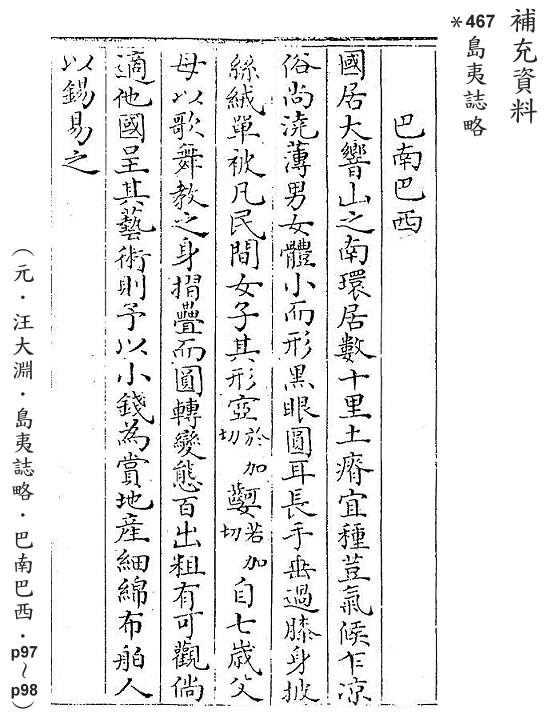 補充資料
*467 島夷誌略
巴南巴西
國居大響山之南環居數十里土瘠宜種荳氣候乍凉
俗尚澆薄男女體小而形黑眼圓耳長手垂過膝身披
絲絨單被凡民間女子其形窊於加切自七歲父
母以歌舞教之身摺疊而圓轉變態百出粗有可觀倘
適他國呈其藝術則予以小錢為賞地產細綿布舶人
以錫易之
(元・汪大淵・島夷誌略・巴南巴西・p97~p98)